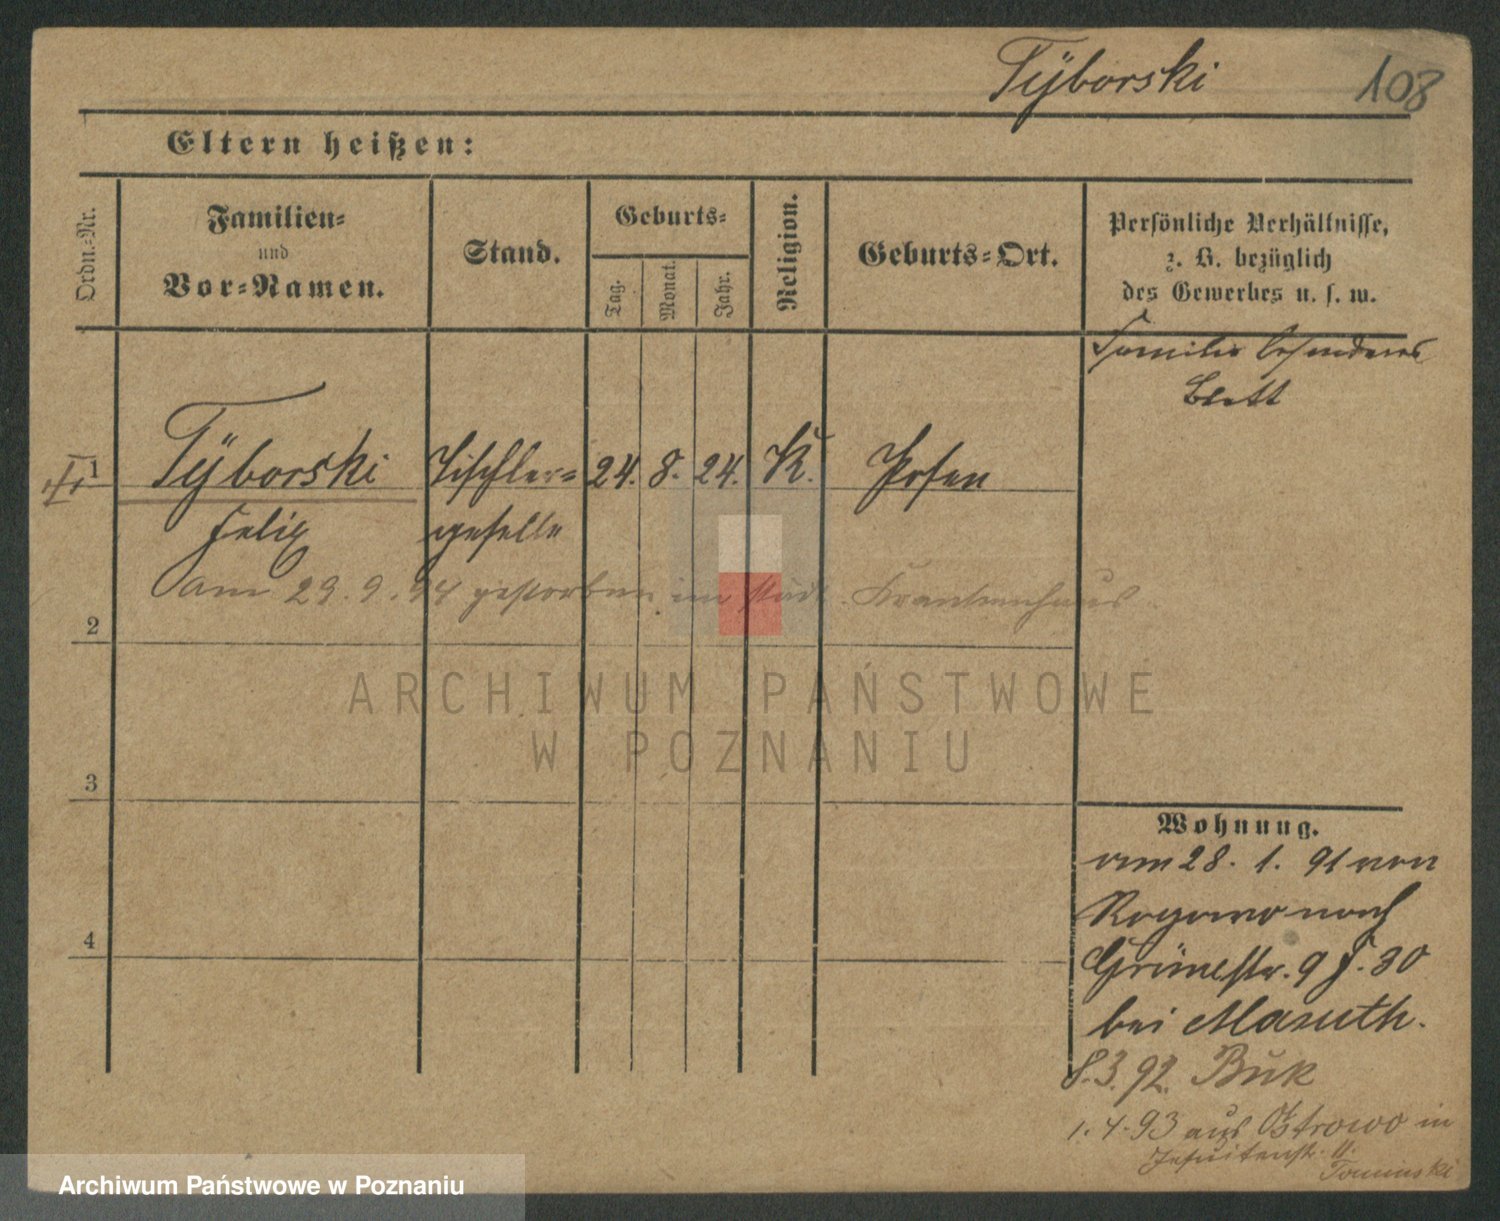 Tÿborski 108
Eltern heißen:
Ordn.-Nr.
Familien-
und
Vor-Namen.
Stand.
Geburts-
Tag.
Monat.
Jahr.
Religion.
Geburts-Ort.
Persönliche Verhältnisse,
z. B. bezüglich
des Gewerbes u. s. w.
Familie besonderes
Blatt
1 Tÿborski Tischler- 24. 8. 24. K. Posen
Felix geselle
am 29. 9. 94 gestorben im städt. Krankenhaus
2
ARCHIWUM PAŃSTWOWE
W POZNANIU
3
4
Wohnung.
am 28. 1. 91 von
Rogowo nach
Grünestr. 9 J. 30
bei Masuth.
8.3.92. Buk
1.4.93 aus Ostrowo in
Jesuitenstr. 11.
Tominski
Archiwum Państwowe w Poznaniu